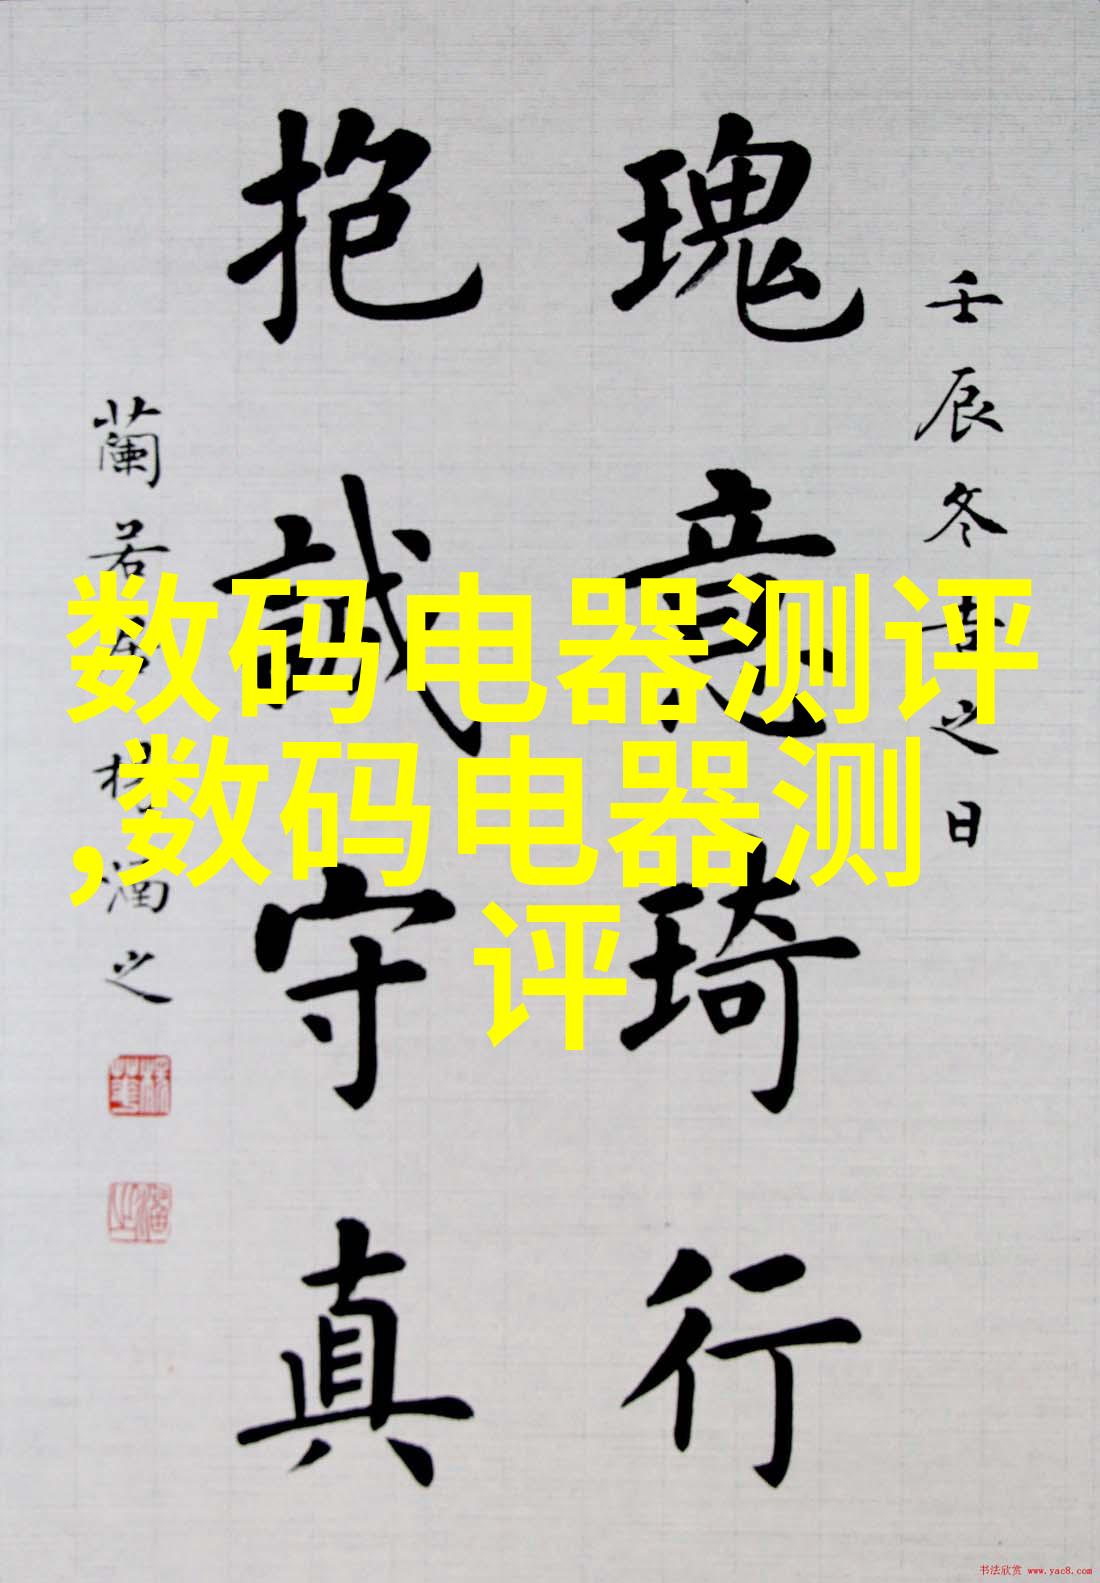 壬辰冬之日
瑰意琦行
抱誠守真
蘭若楊滿之
数码电器测评
,数码电器测
评
书法欣赏 www.yac8.com